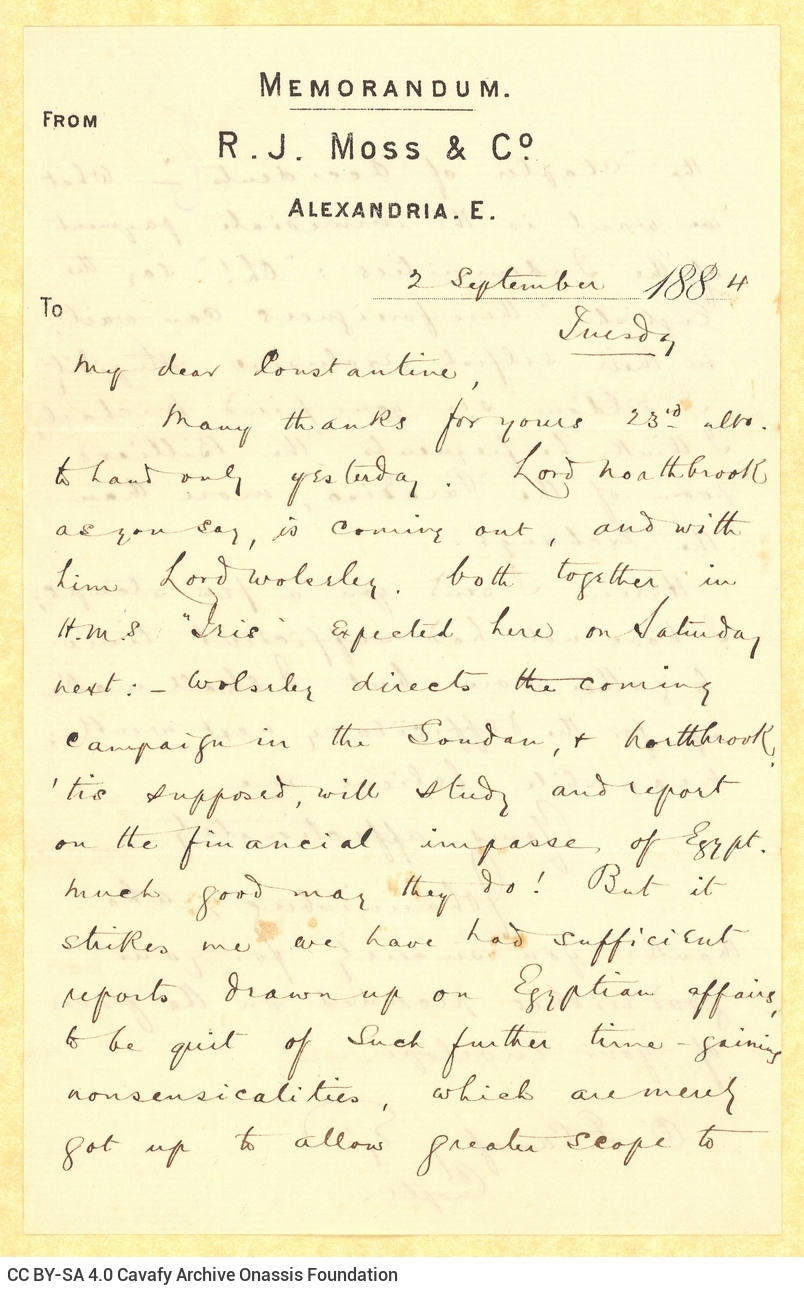 MEMORANDUM.
FROM
R. J. Moss & Co.
ALEXANDRIA. E.
2 September 1884
To
Tuesday
My dear Constantine,
Many thanks for yours 23rd ulto.
to hand only yesterday. Lord Northbrook
as you say, is coming out, and with
him Lord Wolseley. both together in
H.M.S "Iris" expected here on Saturday
next: - Wolseley directs the coming
campaign in the Soudan, & Northbrook,
'tis supposed, will study and report
on the financial impasse of Egypt.
Much good may they do! But it
strikes me we have had sufficient
reports drawn up on Egyptian affairs,
to be quit of such further time-gaining
nonsensicalities, which are merely
got up to allow greater scope to
CC BY-SA 4.0 Cavafy Archive Onassis Foundation